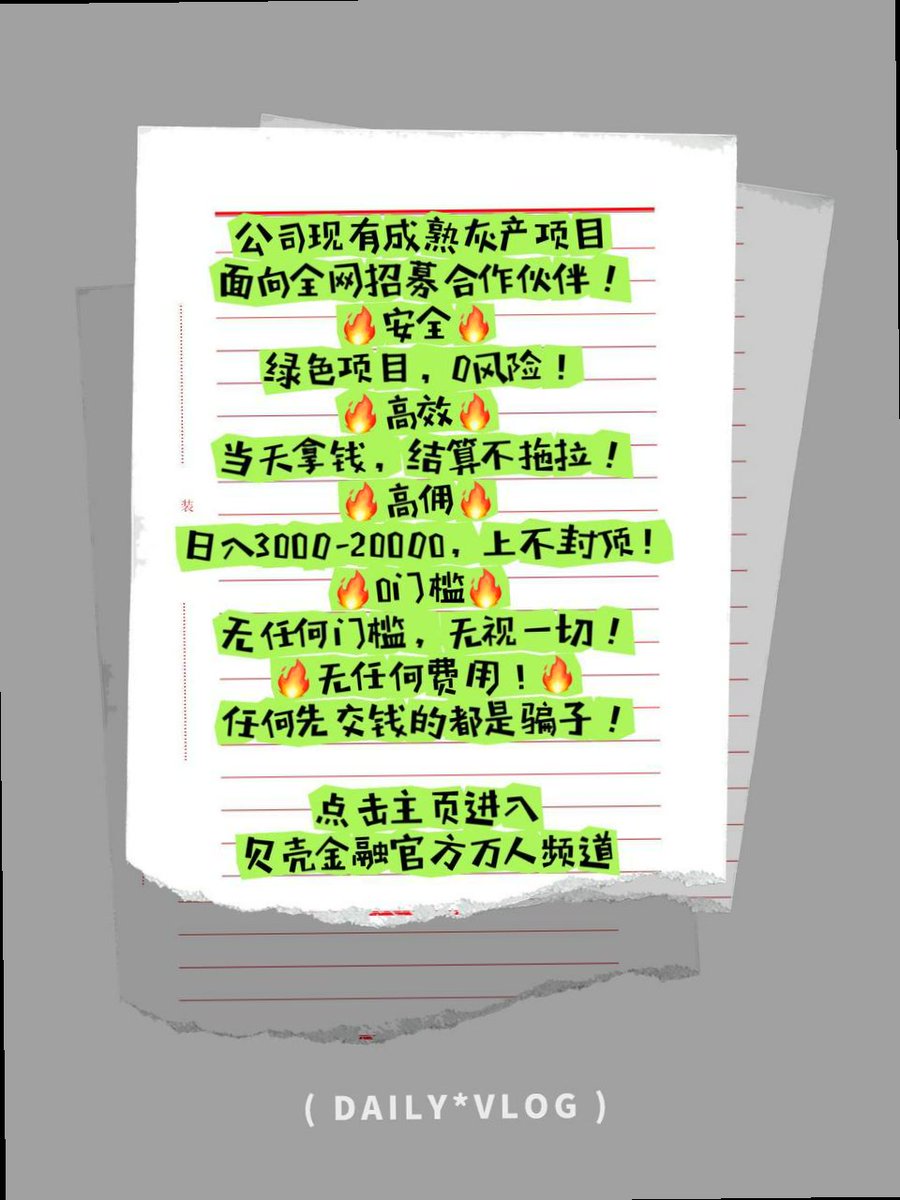 公司现有成熟灰产项目
面向全网招募合作伙伴！
🔥安全🔥
绿色项目，0风险！
🔥高效🔥
当天拿钱，结算不拖拉！
🔥高佣🔥
日入3000-20000，上不封顶！
🔥0门槛🔥
无任何门槛，无视一切！
🔥无任何费用！🔥
任何先交钱的都是骗子！
点击主页进入
贝壳金融官方万人频道
装
( DAILY*VLOG )